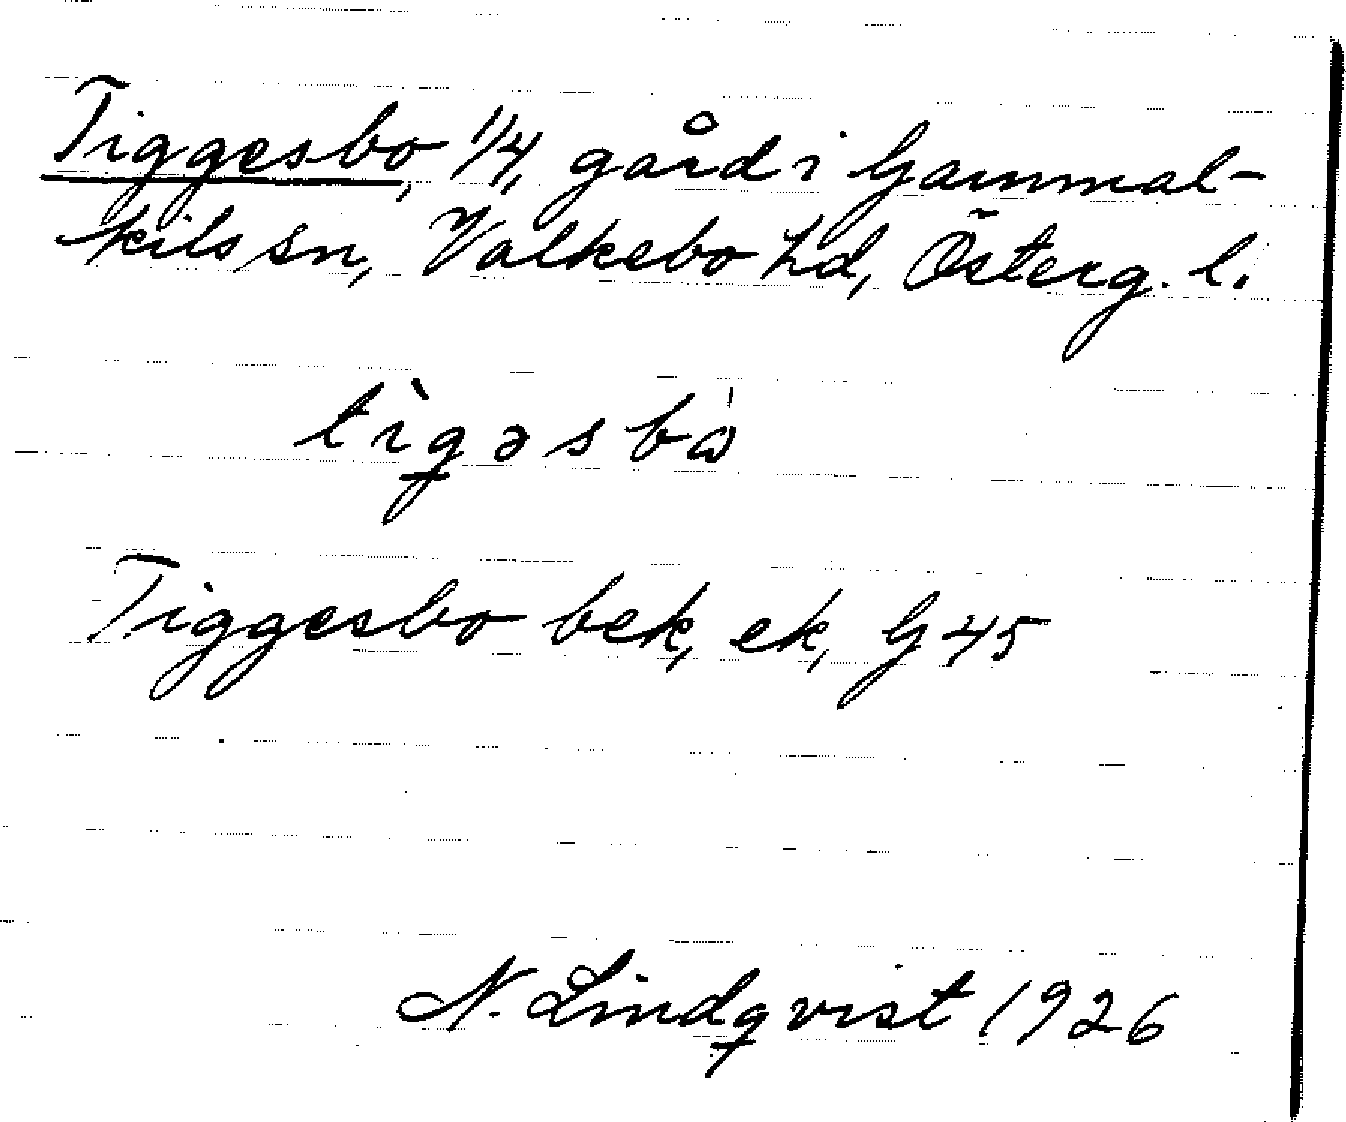 Tiggesbo, 1/4, gård i Gammal-
kils sn, Valkebo hd, Österg. l.
tìgəsbὼ
Tiggesbo bek, ek, G 45
N. Lindqvist 1926